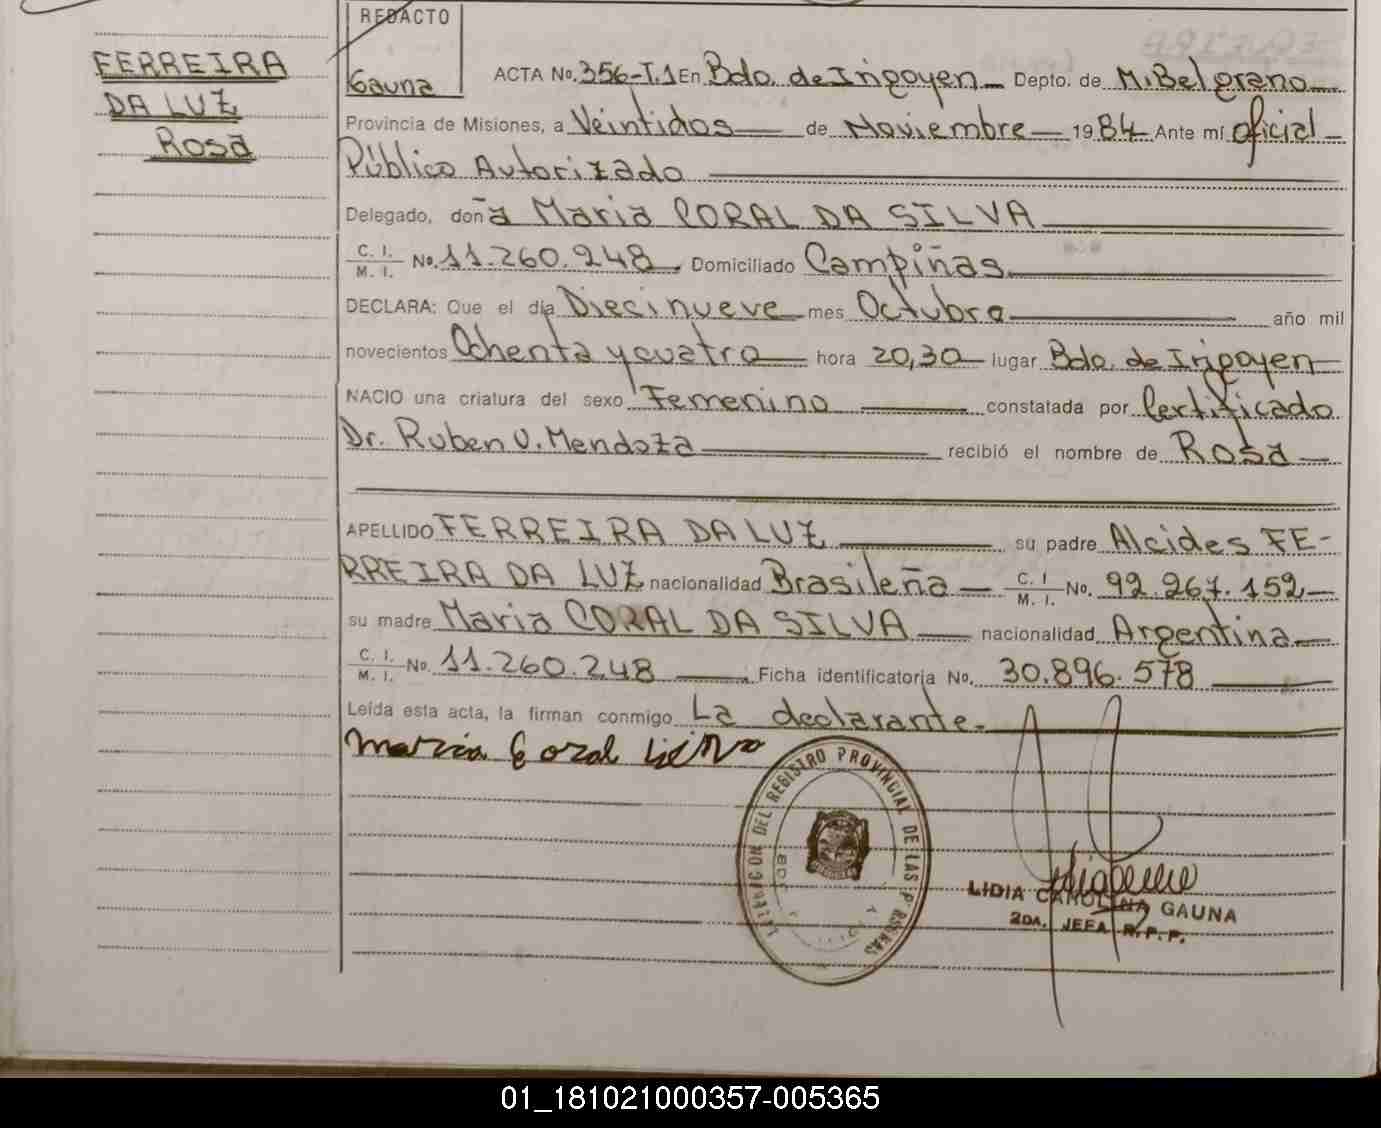 FERREIRA
DA LUZ
Rosa
REDACTO
Gauna
ACTA No. 356-T.1 En Bdo. de Irigoyen Depto. de M. Belgrano
Provincia de Misiones, a Veintidos de Noviembre 1984 Ante mí oficial
Público Autorizado
Delegado, doña Maria CORAL DA SILVA
C. I.
M. I. No. 11.260.248 Domiciliado Campiñas
DECLARA: Que el día Diecinueve mes Octubre año mil
novecientos Ochenta y cuatro hora 20,30 lugar Bdo. de Irigoyen
NACIO una criatura del sexo Femenino constatada por Certificado
Dr. Ruben O. Mendoza recibió el nombre de Rosa
APELLIDO FERREIRA DA LUZ su padre Alcides FE-
RREIRA DA LUZ nacionalidad Brasileña C. I. M. I. No. 92.267.152
su madre Maria CORAL DA SILVA nacionalidad Argentina
C. I.
M. I. No. 11.260.248 Ficha identificatoria No. 30.896.578
Leída esta acta, la firman conmigo La declarante.
maria Coral
DEL REGISTRO PROVINCIAL DE LAS PERSONAS
LIDIA CAROLINA GAUNA
2DA. JEFA R.P.P.
01_181021000357-005365